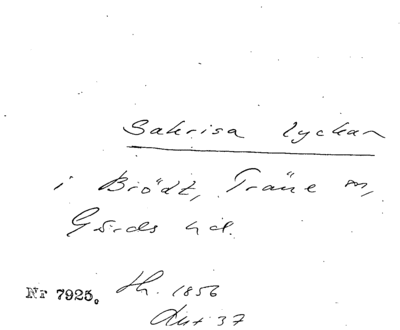 Sakrisa lyckan
i Brödt, Träne sn,
Gärds hd.
Nr 7925. Lh. 1856
Akt 37